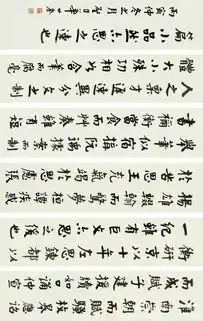 人之稟才遲速異分文之制
體大小殊功相如含筆而腐毫
揚雄輟翰而驚夢桓譚疾感
於苦思王充氣竭
衡研京以十年左思練都以
一紀雖有巨文亦思之緩也
淮南崇朝而賦騷枚皋應詔
而成賦子建援牘如口誦仲宣
舉筆似宿構阮瑀據案而制
書禰衡當食而草奏雖有短
篇小品亦思之速也
丙寅仲冬之月